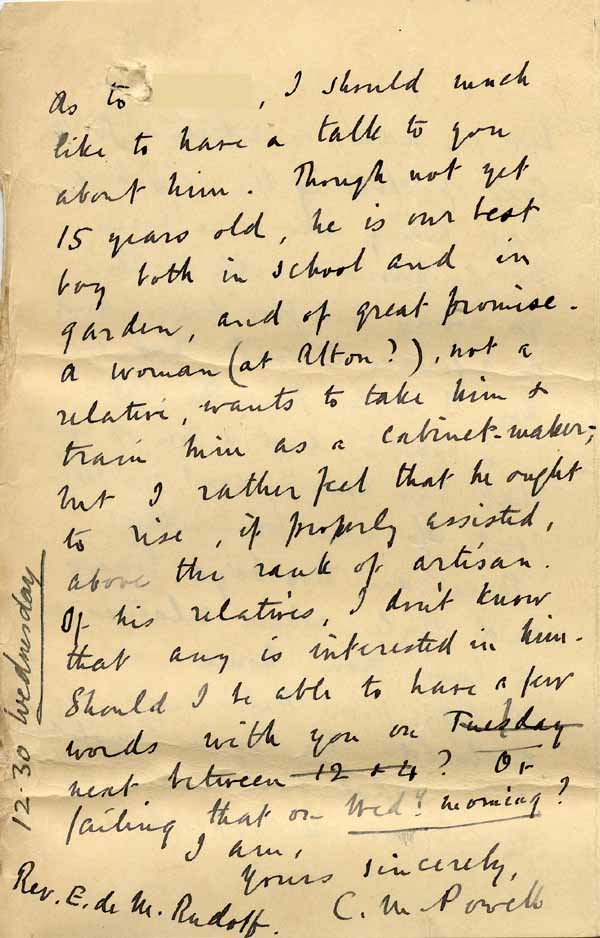 As to           , I should much
like to have a talk to you
about him. Though not yet
15 years old, he is our best
boy both in school and in
garden, and of great promise.
A woman (at Alton?), not a
relative, wants to take him &
train him as a cabinet-maker;
but I rather feel that he ought
to rise, if properly assisted,
above the rank of artisan.
Of his relatives, I don't know
that any is interested in him.
Should I be able to have a few
words with you on Tuesday
next between 12 & 4? Or
failing that on Wedy. morning?
I am,
Yours sincerely,
C. M. Powell
Rev. E. de M. Rudolf.
12.30 Wednesday